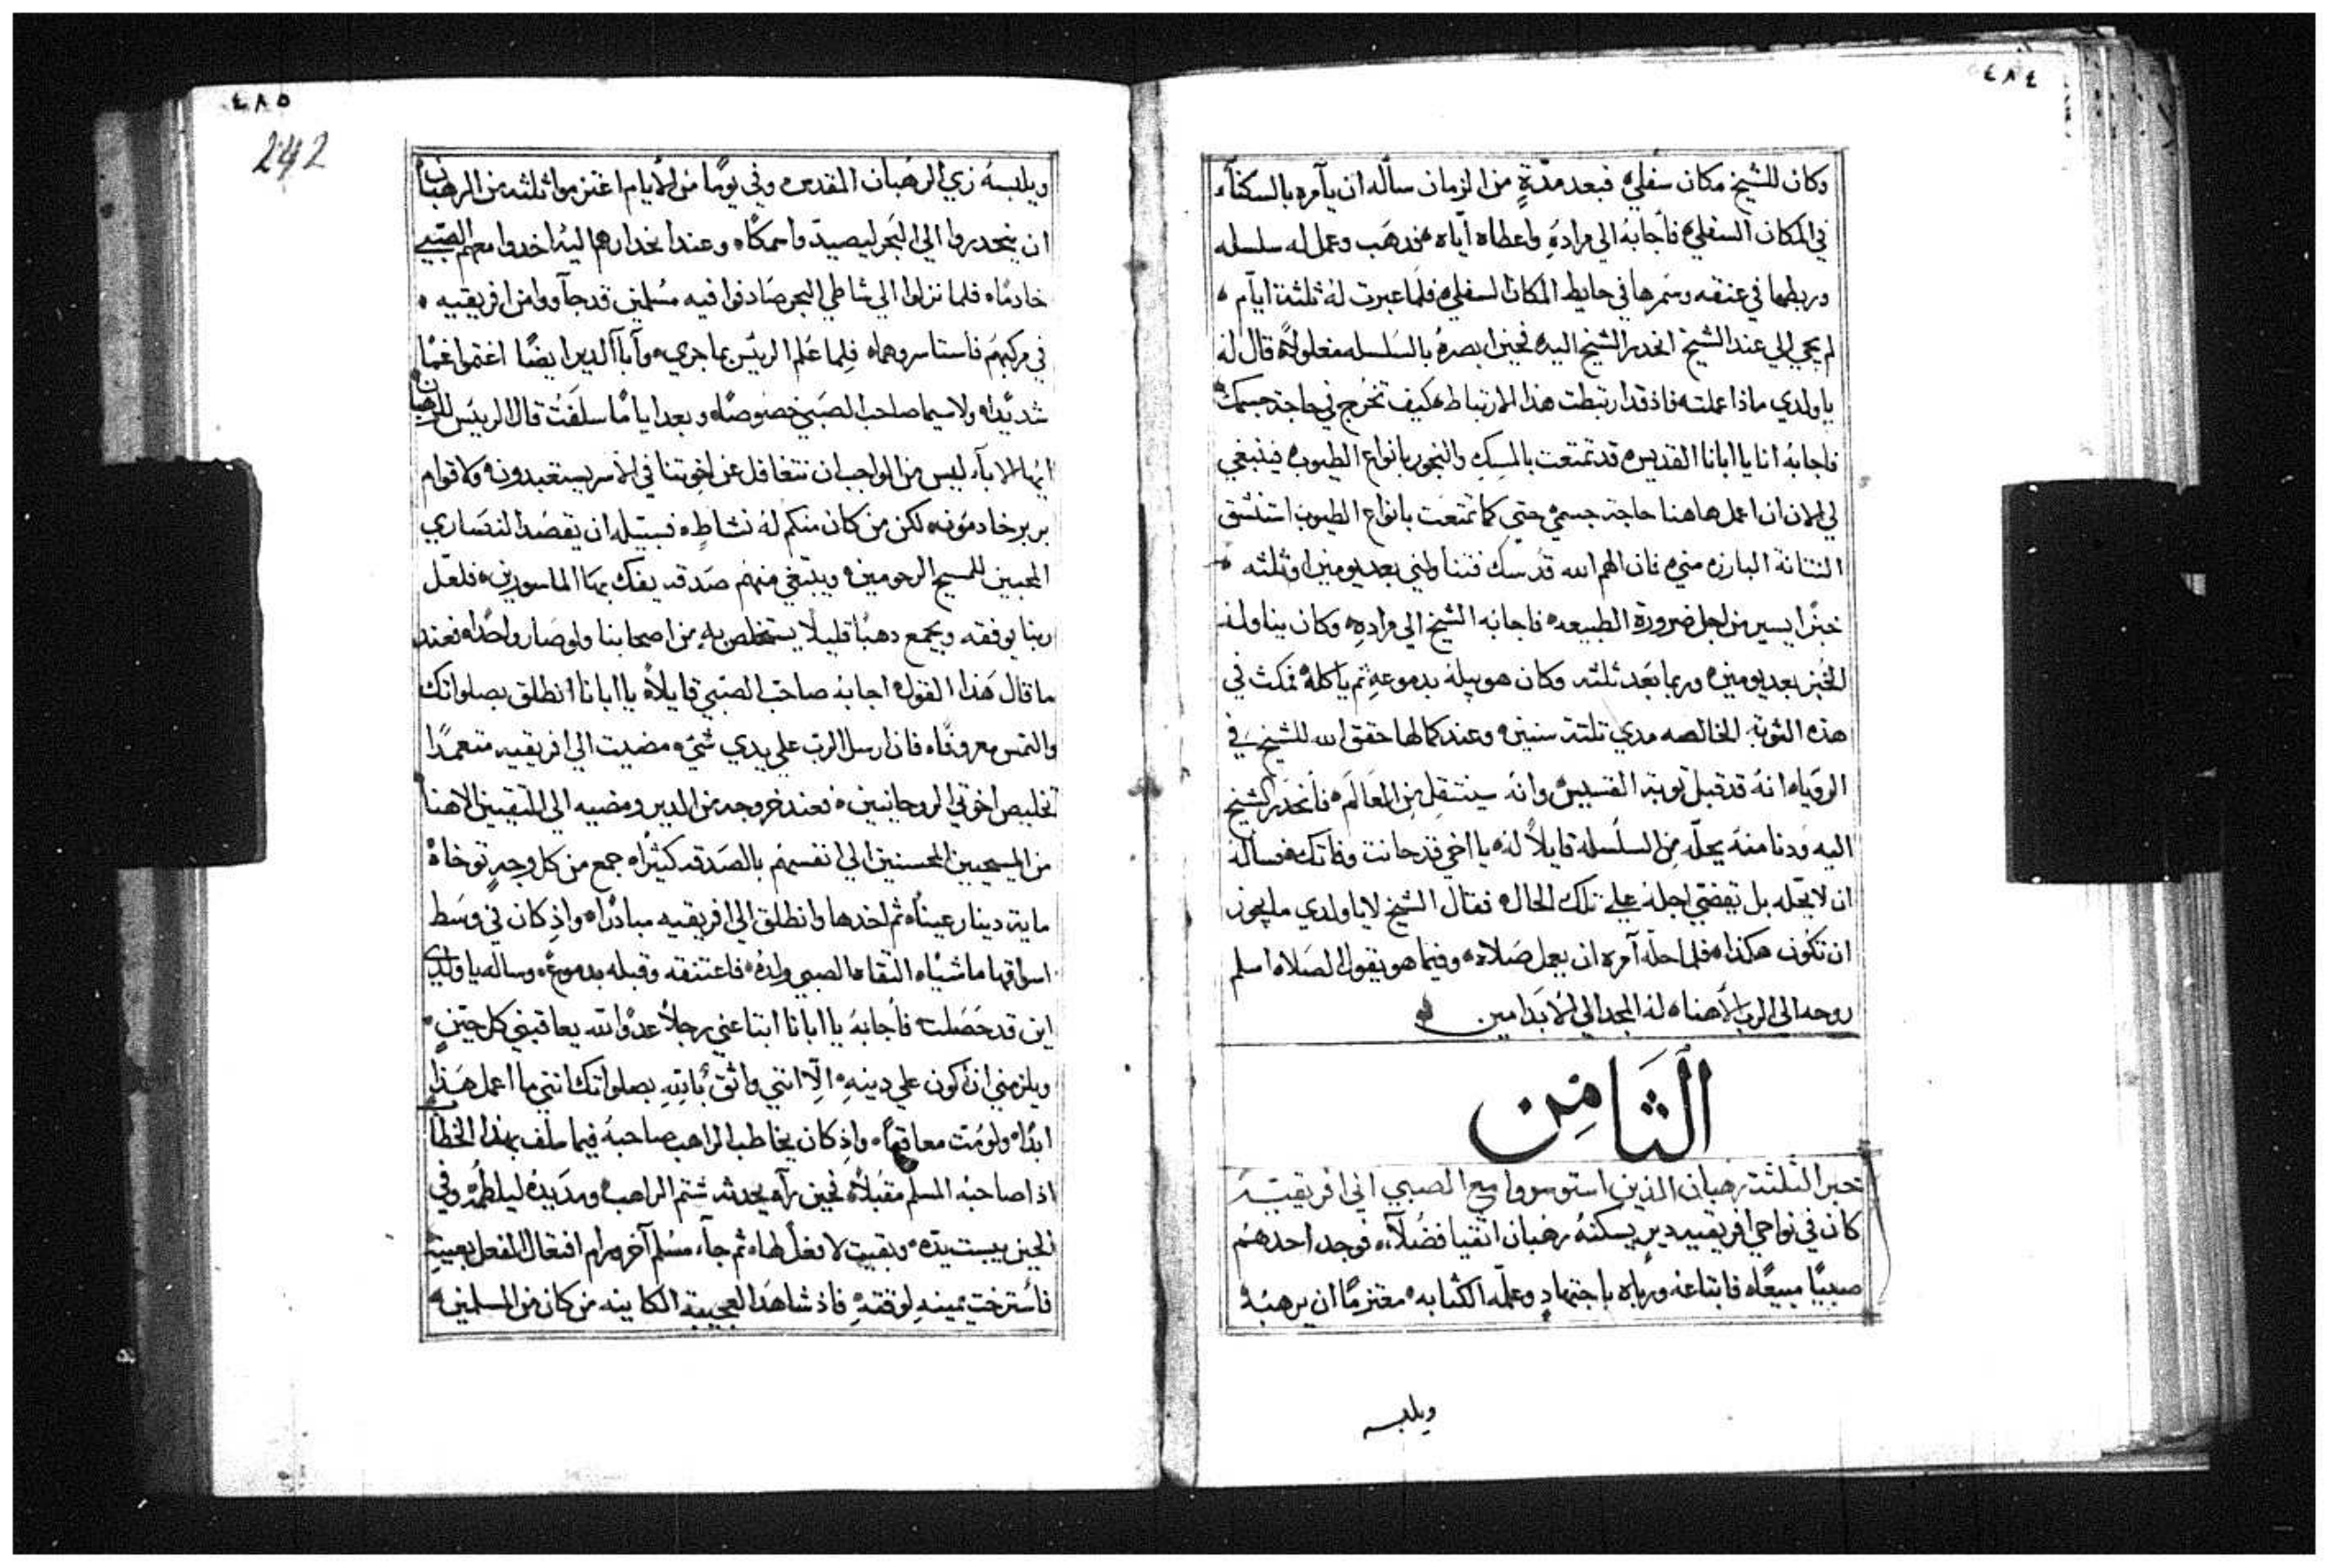 ٤٨٤
وكان للشيخ مكان سفلي فبعد مدّةٍ من الزمان سأله ان يآمره بالسكنآء
في المكان السفلي فأجابهُ الي مرادهُ واعطاه آياه فدهَب وعمل له سلسله
وربطها في عنقه وسمرها في حايط المكان السفلي فلما عبرت لهُ ثلثة ايآم
لم يجي الي عند الشيخ انحدر الشيخ اليه فحين ابصرهُ بالسَلسله مغلولاً قال لهُ
يا ولدي ماذا عملت فاذ قد ارتبطت هذا الارتباط كيف تخرُج في حاجة جسمك
فاجابهُ انا يا ابانا القديس قد تمتعت بالمِسِك والبخور بانواع الطيوب فينبغي
لي الان ان اعمل هاهنا حاجة جسمي حتي كما تمتعَت بانواع الطيوب استنشق
النتانة البارزه مني فان الهم الله قدسك فتناولني بعد يومين او ثلثه
خبزًا يسير من اجل ضرورة الطبيعه فاجابه الشيخ الي مرادهِ وكان يناولهُ
الخُبز بعد يومين وربما بعَد ثلثه وكان هو يبلهُ بدموعهِ ثم ياكلهُ فمكث في
هذه التوبة الخالصه مدي ثلثة سنين وعند كمالها حقق الله للشيخ في
الروَياه انهُ قد قبل توبة القسيس وانه سينتقِل مِن العَالَم فأنحدَر الشيخ
اليه وَدنا منهُ يحلّه مِن السلسله قايلاً لهُ يا اخي قد حانت وفاتك فسألهُ
ان لا يحّله بل يَقضي اجلهُ علي تلك الحال فقال الشيخ لا يا ولدي ما يجوز
ان تكُون هكذاه فلما حلّه آمره ان يعمل صَلاه وفيما هو يقول الصَلاه اسلم
روحه الى الرب الأهناه لهُ المجد الي الأبَد امين
اَلثَامِن
خبر الثلثة رُهبان الذين استوسروا مع الصبي الى افريقية
كان في نواحي افريقيه ديرٍ يسكنهُ رهُبان اتقيا فضُلآء فوجد احدهُم
صبيًا مبيعًاه فابتاعهُ ورباه باجتهادٍ وعلّمه الكتابه معتزمًا ان يرهبهُ
ويلبسه
٤٨٥
242
ويلبسهُ زي الرهُبان المقدس وفي يومًا من الأيام اعتزموا ثلثه من الرهبان
ان ينحدروا الي البَحر ليصيدوا سمكًاه وعند انحدارهم اليهُ اخدوا معهم الصَبي
خادمًاه فلما نزلوا الي شاطي البحر صَادفوا فيه مسُلمين قد جآووا من افريقيه
في مركبهم فأستاسروهماه فلِما عَلم الريسّ بما جري وآبآ الدير ايضًا اغتموا غمًا
شديدًاه ولا سيما صاحب الصَبي خصوصًاه وبعد ايامًا سلفَت قال الريسّ للرهبان
ايُها الابآء ليس من الواجب ان نتغافل عن اخِوتنا في الأسر يستعبدون ولاقوام
بربر خادموُنه لكن من كان منكم لهُ نشاطٍ فسبيله ان يقصد النصَاري
المحبين للمسيح الرحومين ويبتغي منهُم صَدقه يفك بها الماسورين فلعَل
ربنا يوفقه ويجمع دهبًا قليلًا يستخلص بهِ من اصحابنا ولو صَار واحدًاه فعند
ما قال هَذا القول اجابهُ صاحب الصَبي قايلاً يا ابانا انطلق بصلواتك
والتمس معروفًاه فان ارسل الرب علي يدي شيً مضيت الي افريقيه متعمدًا
تخليص اخوتي الروحانيين فعند خروجه من الدير ومضيه الي المتقيين لالاهنا
من المسيحيين المحسنين الي انفسهم بالصَدقه كثيرًاه جمع من كل وجهٍ توخاهُ
ماية دينار عينًاه ثم اخدها وانطلق الي افريقيه مبادرًاه واذِ كان في وسَط
اسواقها ماشيًاه التقاه الصبي ولدهُ فاعتنقه وقبله بدموعٍ وساله يا ولدي
اين قد حَصَلت فأجابهُ يا ابانا ابتاعني رجلاً عدوًا لله يعاقبني كل حينٍ
ويلزمني ان اكون علي دينهِ الّا انني واثق بألله بصلواتك انني ما اعمل هَذا
ابدًاه ولو مُت معاقبًا واذِ كان يخاطب الراهب صاحبهُ فيما سلف بهذا الخطاب
اذا صاحبهُ المسلم مقُبلاً فحين رآه يحدثه شتم الراهب ومدَ يدهُ ليلطمُه وفي
الحين يبست يدّه وبقيت لا فعل لهاه ثم جآء مسُلم آخر ورام افتعال الفعل بعينهِ
فأسترخت يمينهِ لوقتهِ فاذ شاهدَ العجيبة الكاينه من كان من المسلمين